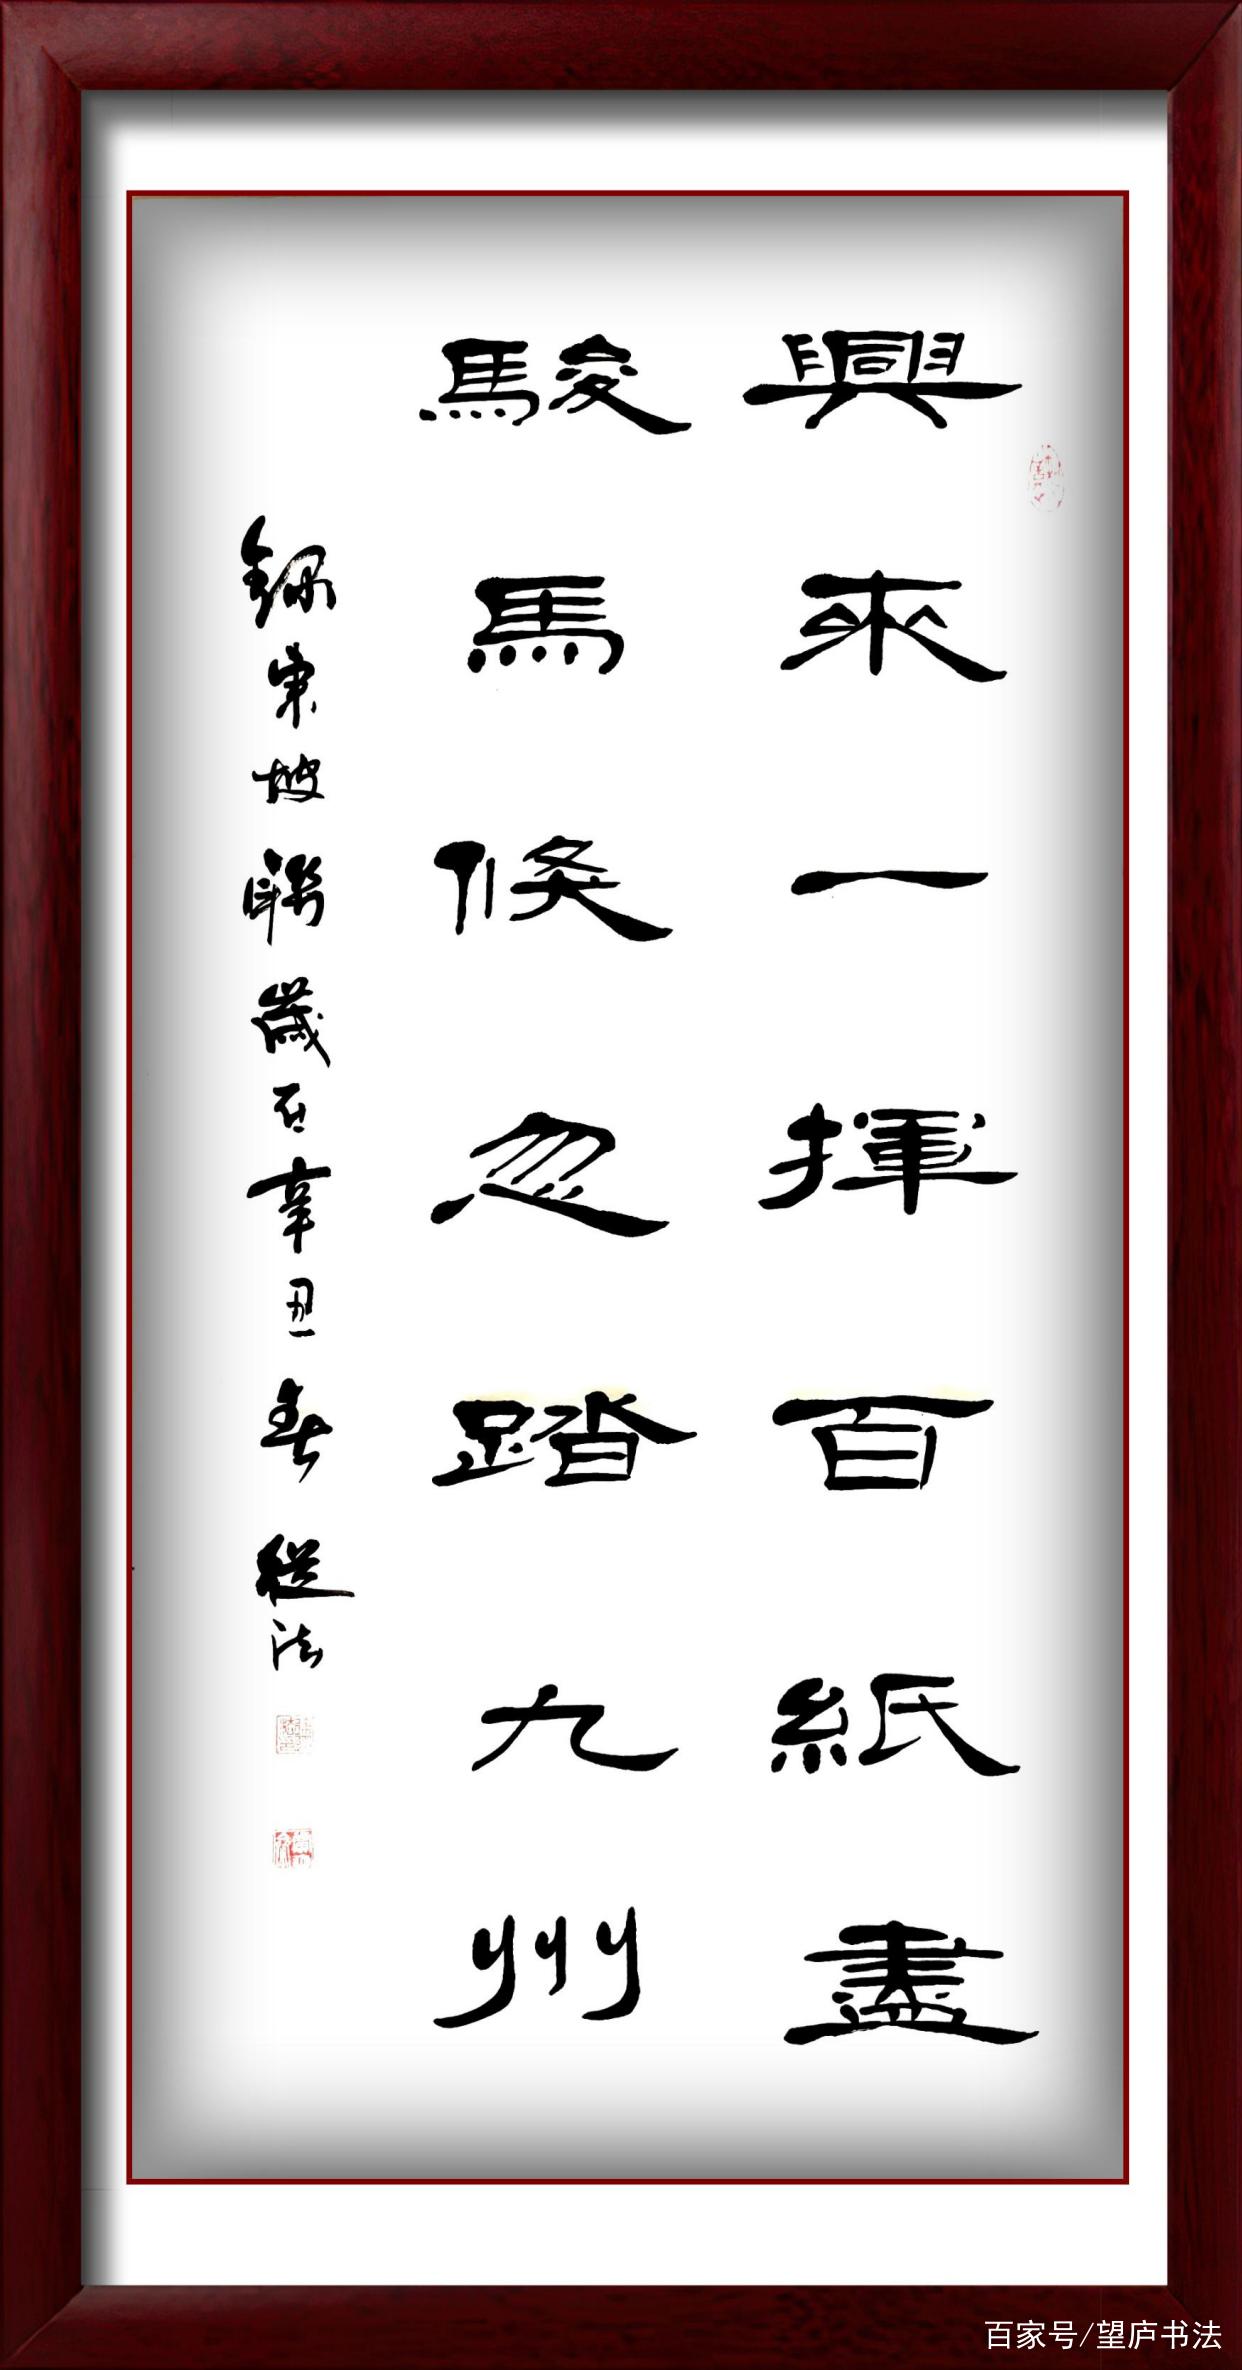 興來一揮百紙盡
駿馬倏忽踏九州
録東坡聯歲在辛丑春從法
百家号/望庐书法